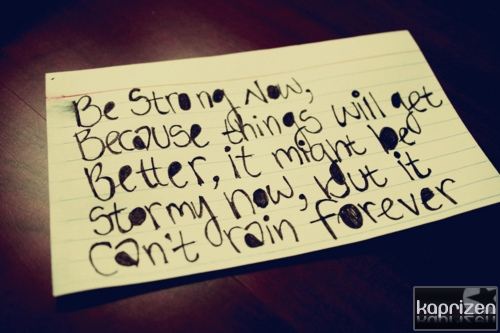 Be Strong Now,
Because things will get
Better, it might be
stormy now, but it
can't rain forever
kaprizen